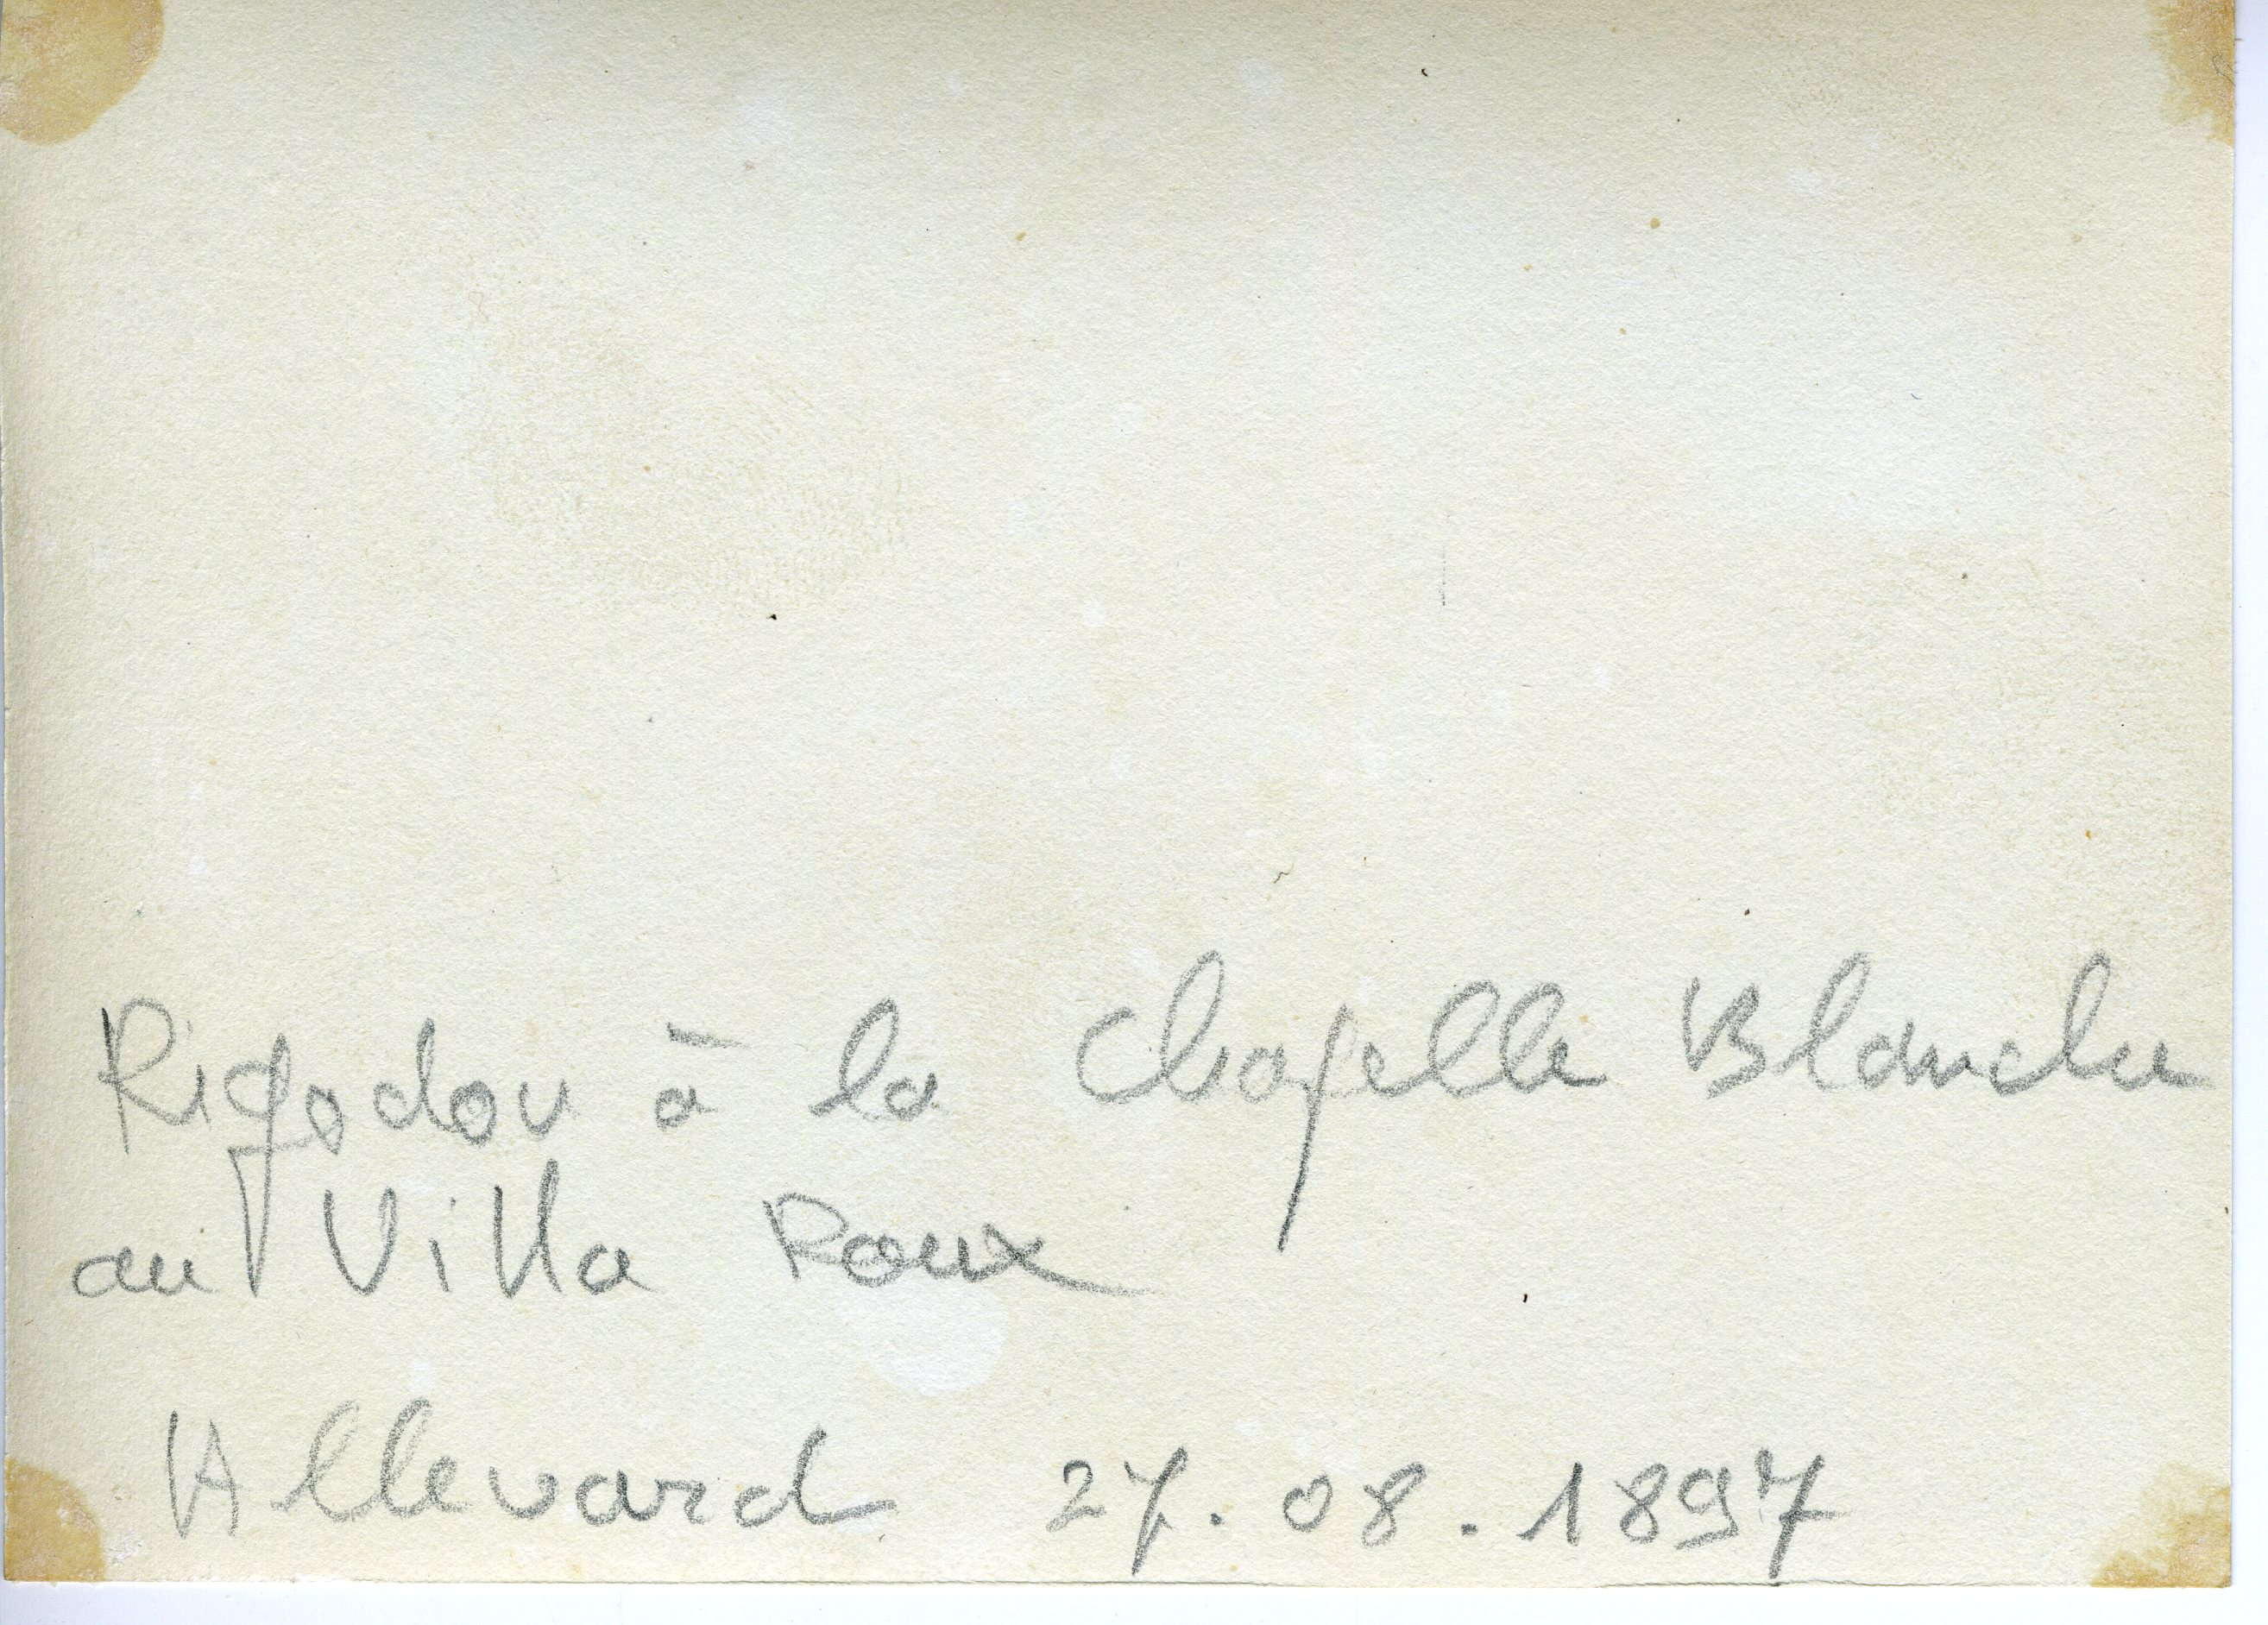 Rigodon à la Chapelle Blanche
au Villa Roux
Allevard 27.08.1897